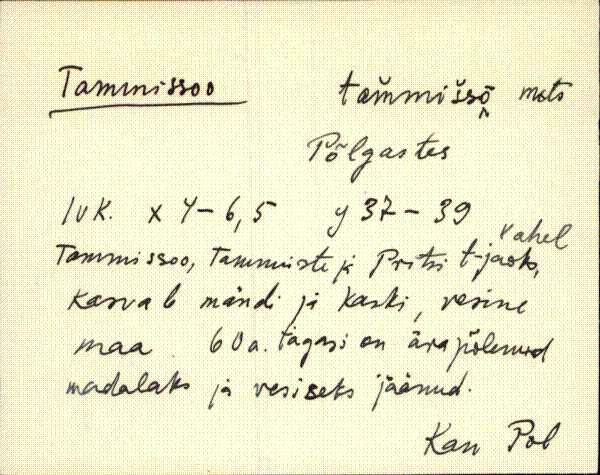 Tammissoo tam̆mis̆sō mets
Põlgastes
IV K. x 4 – 6,5 y 37 – 39
vahel
Tammissoo, Tammiste ja Pritsi t-jaoks,
kasvab mändi ja kaski, vesine
maa. 60 a. tagasi on ära põlenud
madalaks ja vesiseks jäänud.
Kan Põl